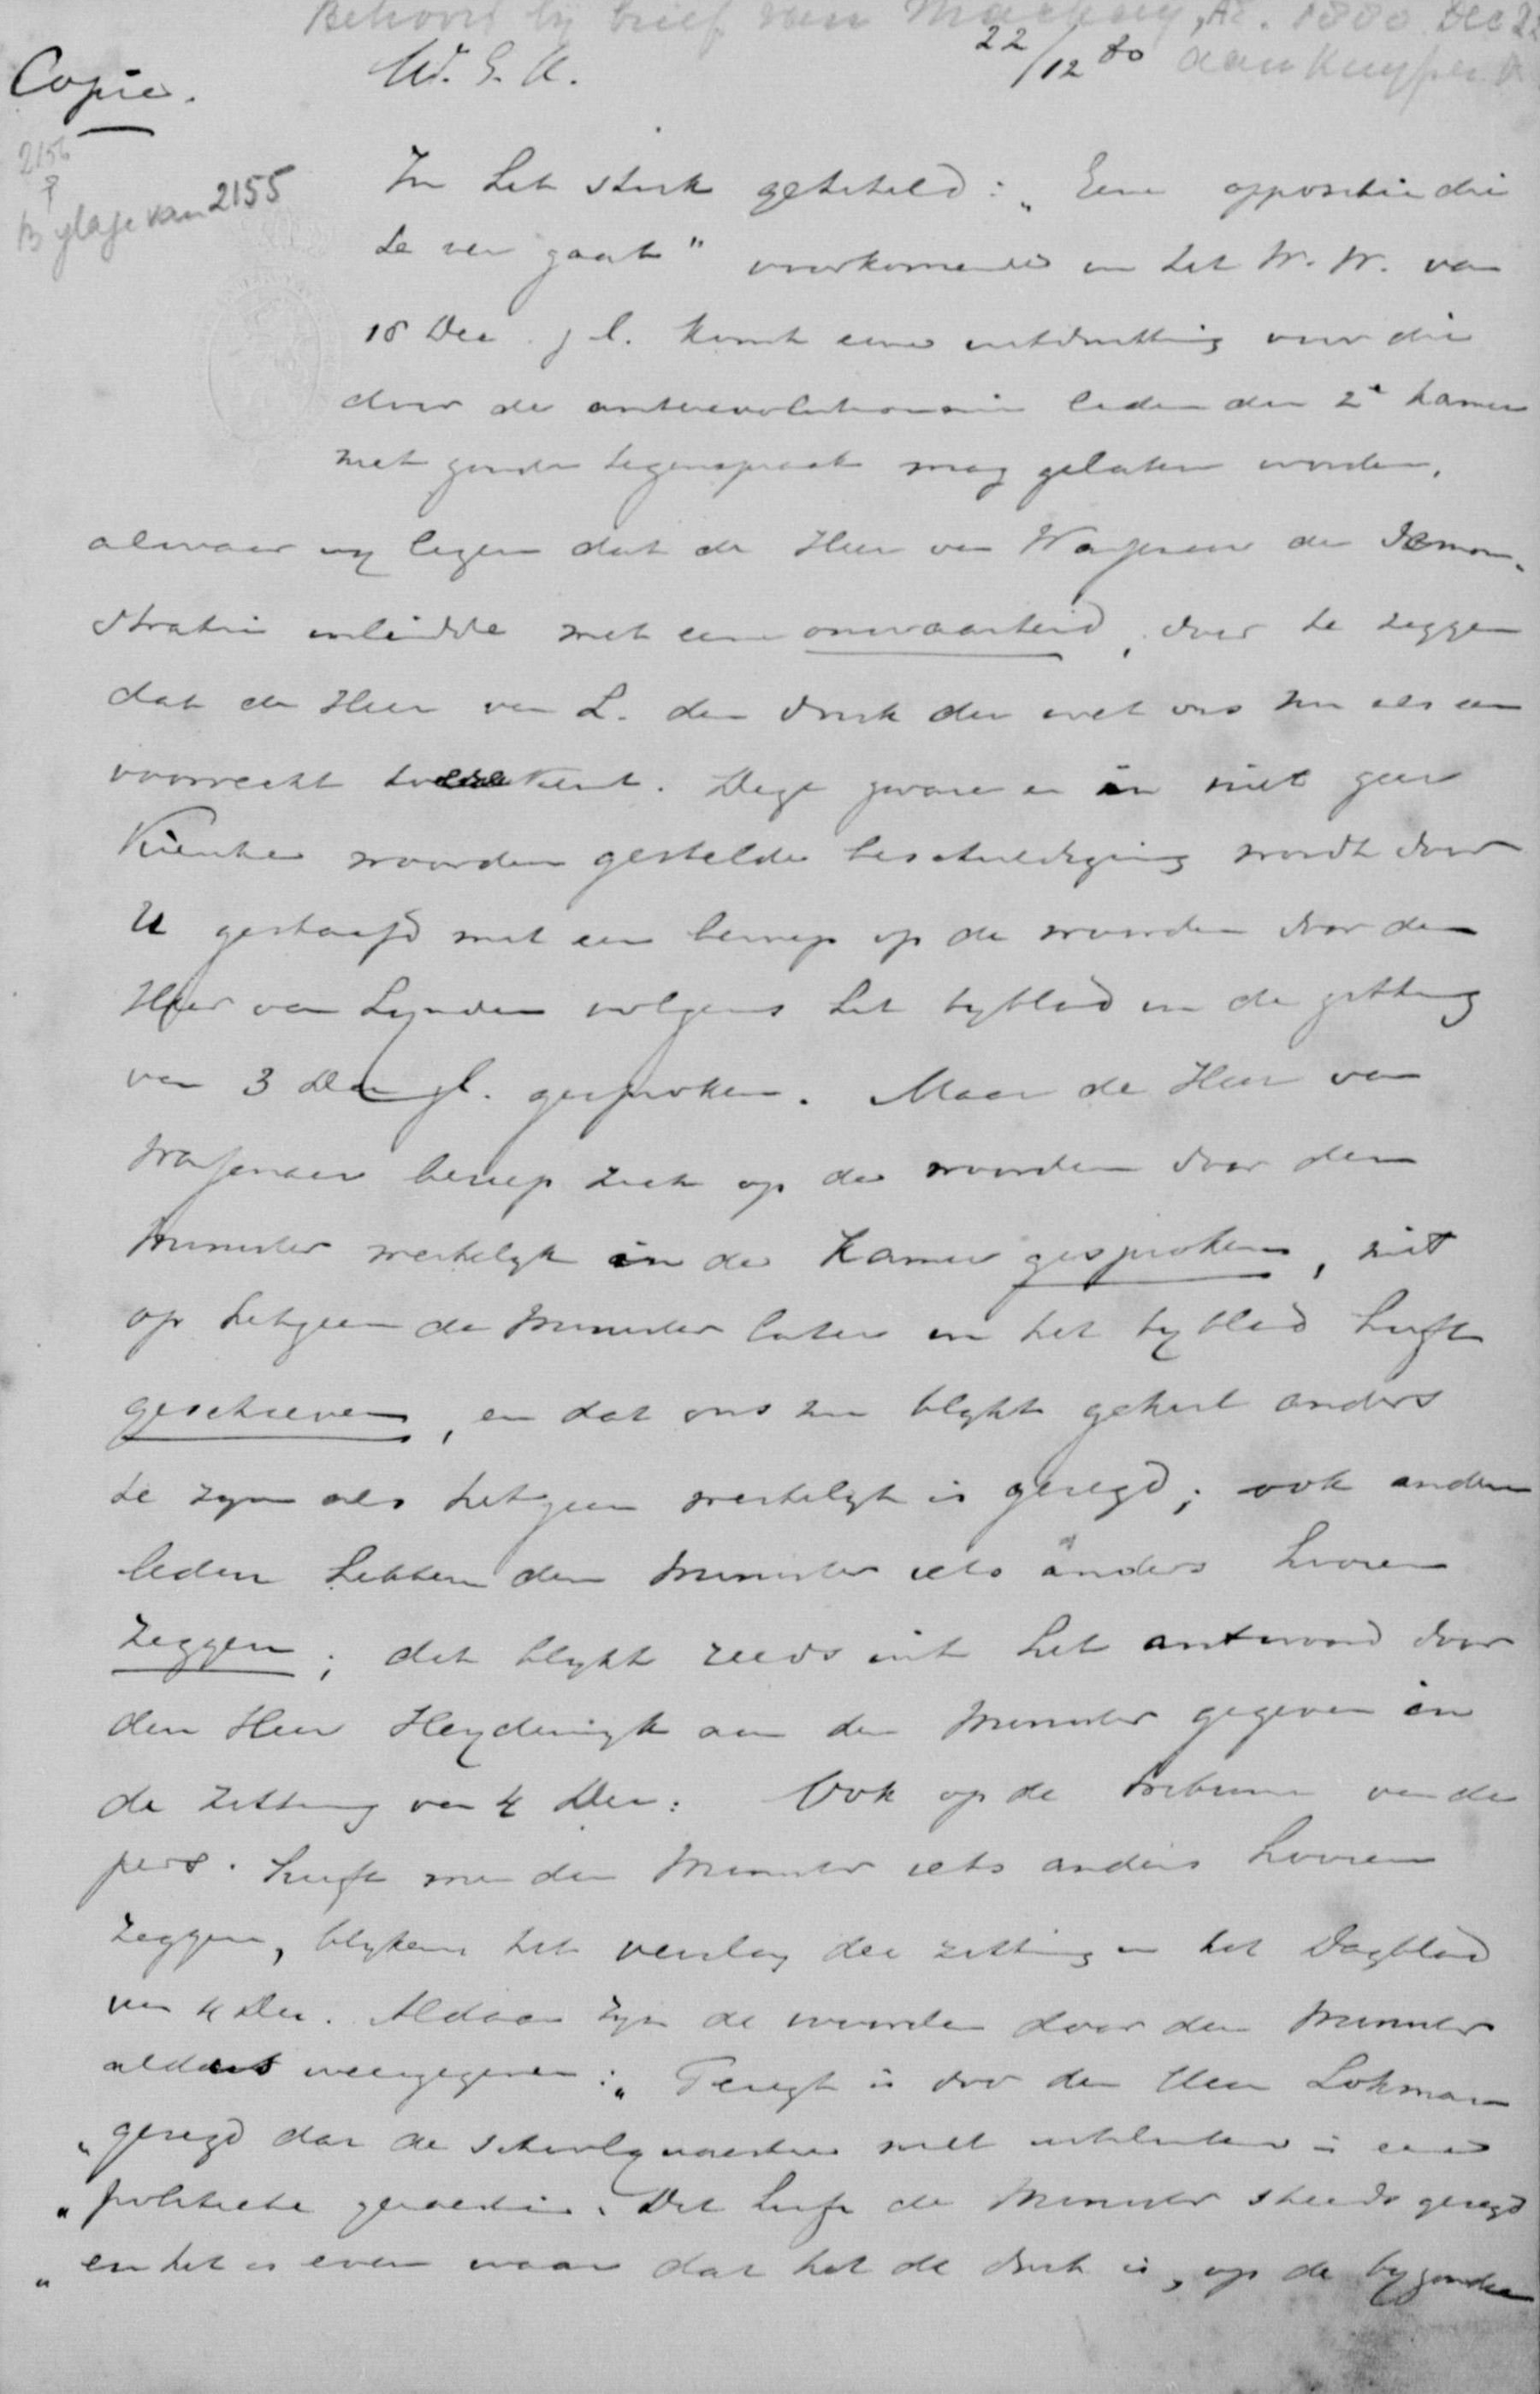 Behoort bij brief van Mackay, AE. 1880 Dec 22
22/12 80 aan Kuyper. A
Copie.
W. E. A.
2156
?
Bylage van 2155
In het stuk getiteld: „Eene oppositie die
te ver gaat" voorkomende in het W. W. van
18 Dec. jl. komt eene uitdrukking voor die
door de antirevolutionaire leden der 2e kamer
niet zonder tegenspraak mag gelaten worden,
alwaar wy lezen dat de Heer van Wassenaer de demon-
stratie inleidde met eene onwaarheid, door te zeggen
dat de Heer van L. den druk der wet ons nu als een
voorrecht toekent. Deze zware en in niet zeer
kiesche woorden gestelde beschuldiging wordt door
U gestaafd met een beroep op de woorden door den
Heer van Lynden volgens het byblad in de zitting
van 3 Dec jl. gesproken. Maar de Heer van
Wassenaer beriep zich op de woorden door den
Minister werkelyk in de Kamer gesproken, niet
op hetgeen de Minister later in het byblad heeft
geschreven, en dat ons nu blykt geheel anders
te zyn als hetgeen werkelyk is gezegd; ook andere
leden hebben den Minister iets anders hooren
zeggen; dit blykt reeds uit het antwoord door
den Heer Heydenryck aan den Minister gegeven in
de zitting van 4 Dec. Ook op de tribune van de
pers. heeft men den Minister iets anders hooren
zeggen, blykens het verslag der zitting in het Dagblad
van 4 Dec. Aldaar zyn de woorden door den Minister
aldus weergegeven: „Teregt is door den Heer Lohman
„gezegd dat de schoolquaestie niet uitsluitend is eene
„politieke quaestie. Dit heeft de Minister steeds gezegd
„en het is even waar dat het de druk is, op de byzondere